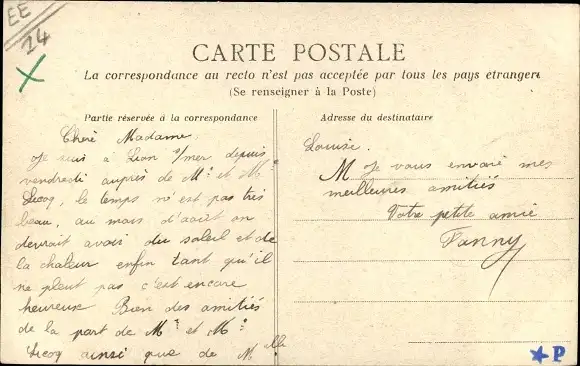 EE
24
CARTE POSTALE
La correspondance au recto n'est pas acceptée par tous les pays étrangers
(Se renseigner à la Poste)
Partie réservée à la correspondance
Adresse du destinataire
Cheré Madame
Je suis à Lion s/mer depuis
vendredi auprès de Mr et Me
Licoq, le temps n'est pas très
beau, au mois d'août on
devrait avoir du soleil et de
la chaleur enfin tant qu'il
ne pleut pas c'est encore
heureux Bien des amitiés
de la part de Mr et Me
Licoq ainsi que de Mlle
Louise.
M Je vous envoie mes
meilleures amitiés
Votre petite amie
Fanny
P